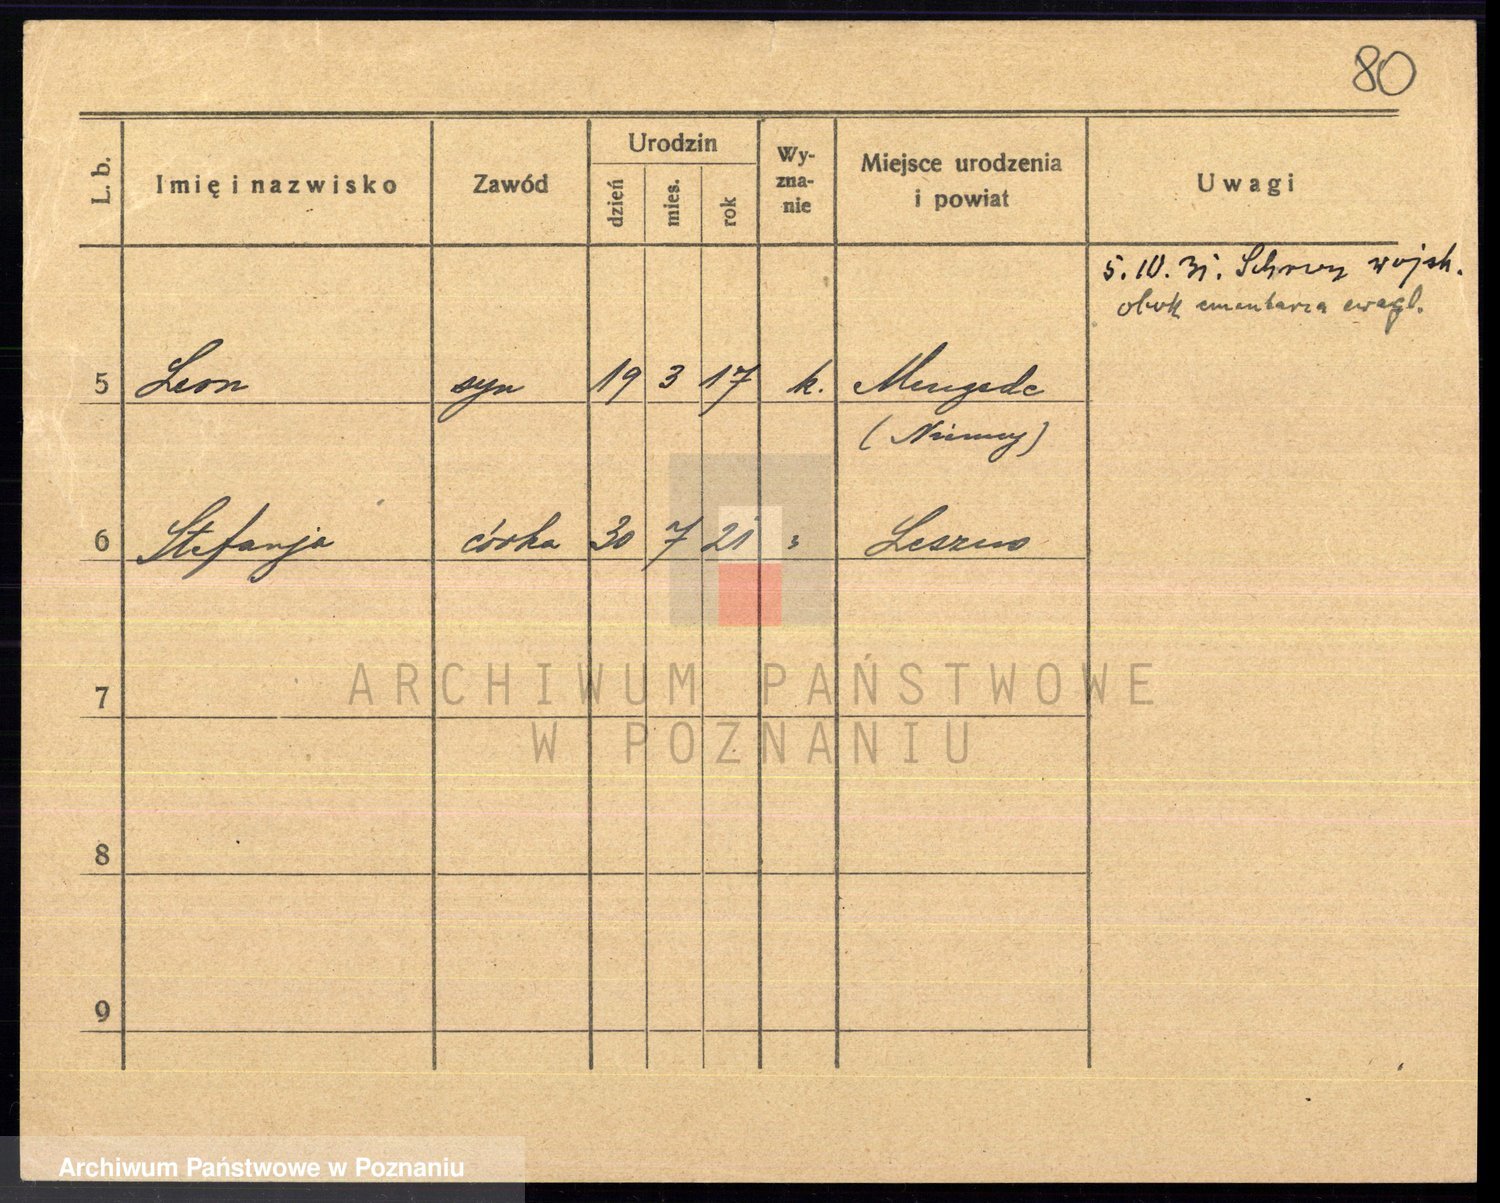 80
L. b.
Imię i nazwisko
Zawód
Urodzin
dzień
mies.
rok
Wy-
zna-
nie
Miejsce urodzenia
i powiat
Uwagi
5. IV. 31. Schrony wojsk.
obok cmentarza ewagl.
5 Leon syn 19 3 17 k. Mengede
(Niemcy)
6 Stefanja córka 30 7 21 " Leszno
7
8
9
ARCHIWUM PAŃSTWOWE
W POZNANIU
Archiwum Państwowe w Poznaniu